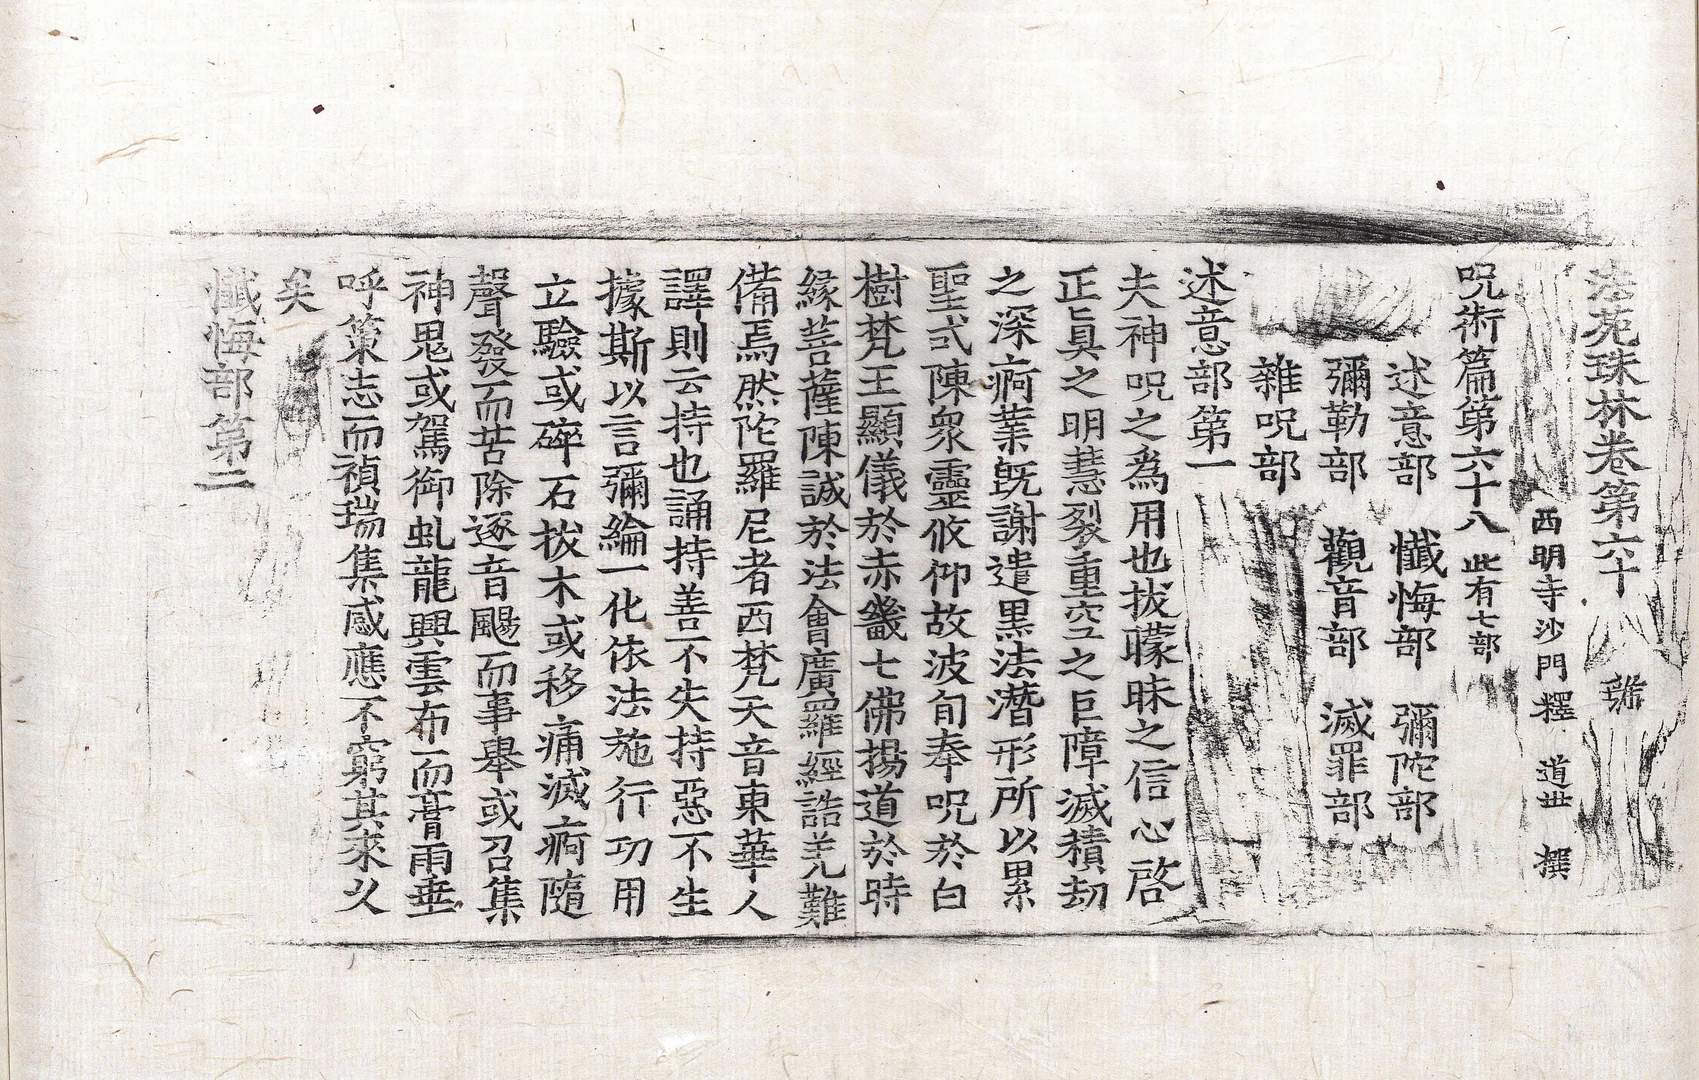 法苑珠林卷第六十
西明寺沙門釋 道世 撰
呪術篇第六十八 此有七部
述意部 懺悔部 彌陀部
彌勒部 觀音部 滅罪部
雜呪部
述意部第一
夫神呪之爲用也拔矇昧之信心啓
正眞之明慧裂重空之巨障滅積劫
之深痾業旣謝遣黑法潛形所以累
聖式陳衆靈攸仰故波旬奉呪於白
樹梵王顯儀於赤畿七佛揚道於時
緣菩薩陳誠於法會廣羅經誥羌難
備焉然陀羅尼者西梵天音東華人
譯則云持也誦持善不失持惡不生
據斯以言彌綸一化依法施行功用
立驗或碎石拔木或移痛滅痾隨
聲發而苦除逐音颺而事舉或召集
神鬼或駕御虬龍興雲布而膏雨垂
呼策志而禎瑞集感應不窮其來乆
矣
懺悔部第二